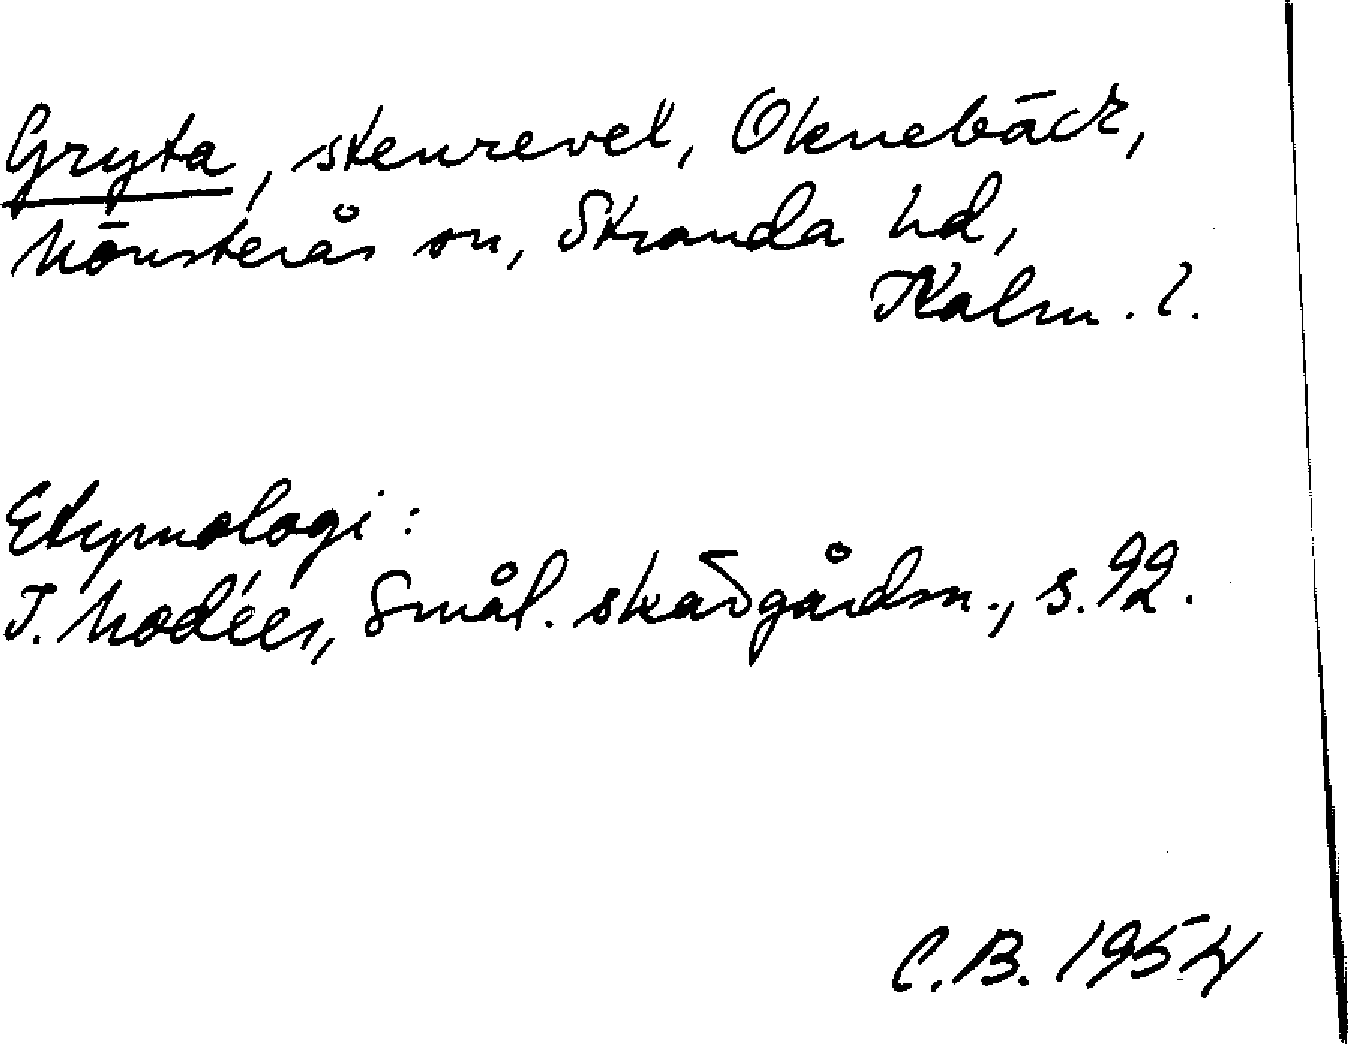 Gryta, stenrevel, Oknebäck,
Mönsterås sn, Stranda hd,
Kalm. l.
Etymologi:
I. Modéer, Smål. skärgårdsn., s. 92.
C.B. 1954